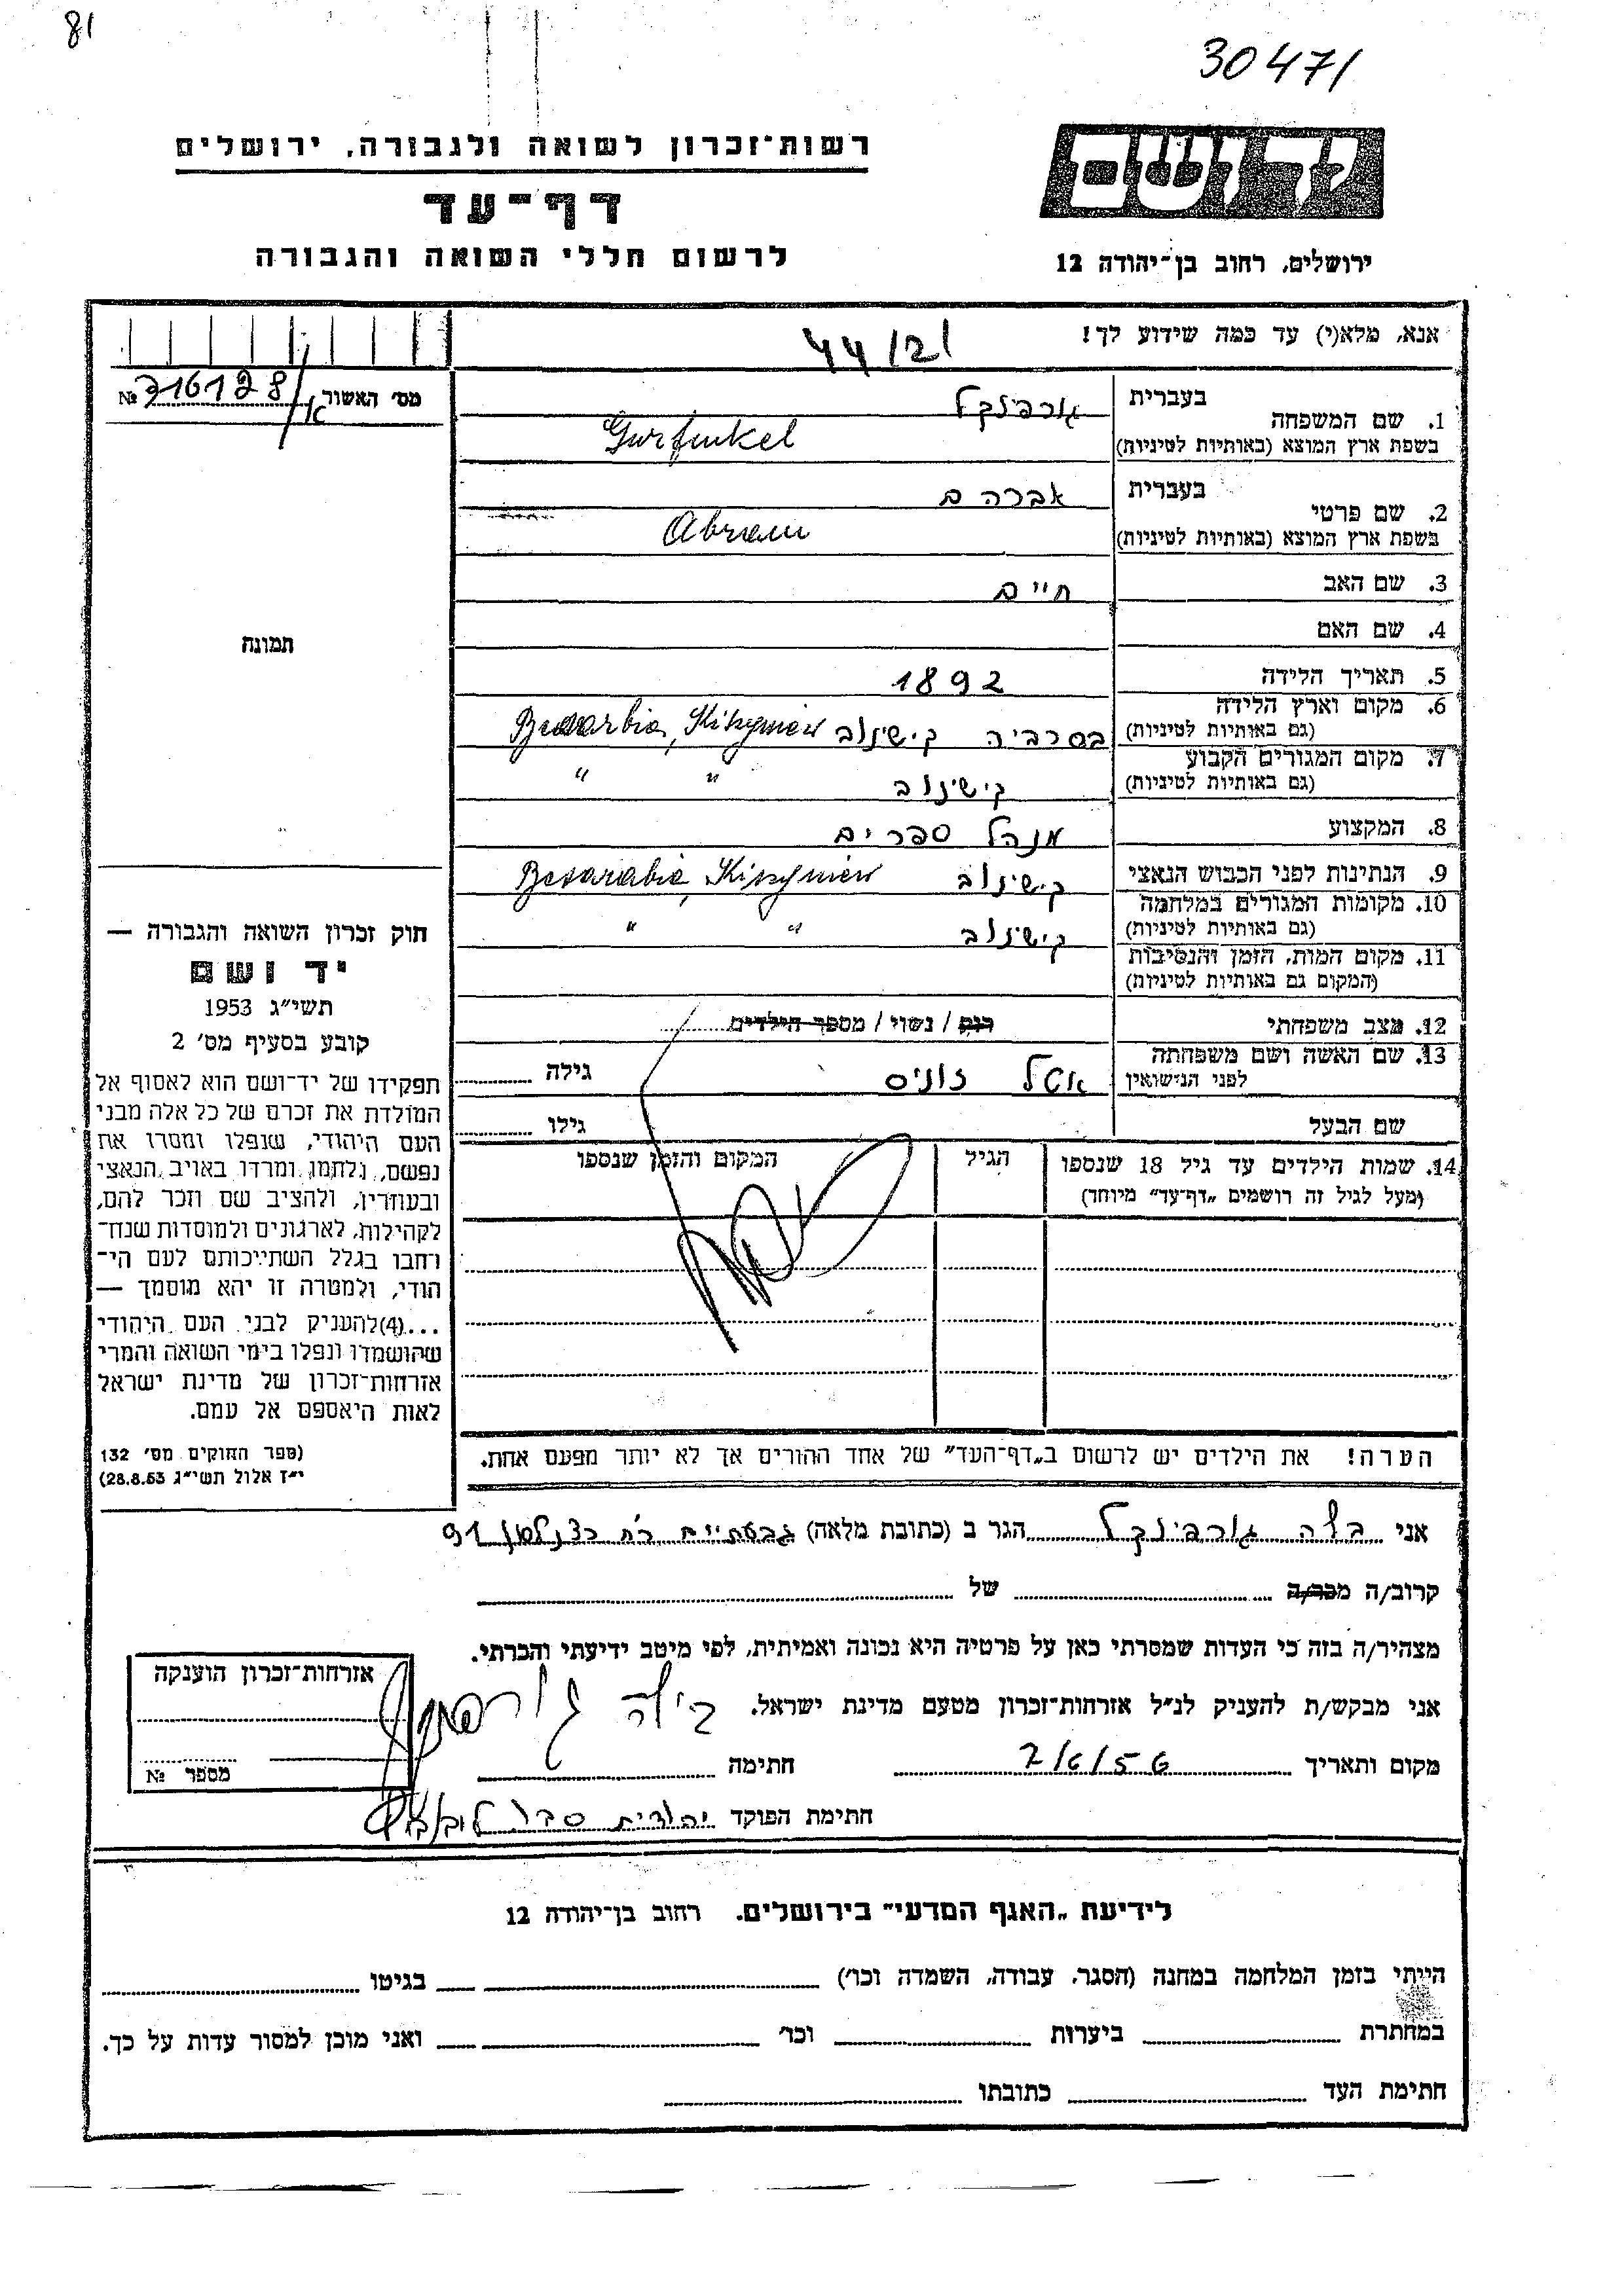 81
30471
רשות־זכרון לשואה ולגבורה, ירושלים
דף־עד
לרשום חללי השואה והגבורה
יד ושם
ירושלים, רחוב בן־יהודה 12
אנא, מלא(י) עד כמה שידוע לך!
44/21
מס' האשור № 316128/א
1. שם המשפחה
בעברית גורפינקל
בשפת ארץ המוצא (באותיות לטיניות) Gurfinkel
2. שם פרטי
בעברית אברהם
בשפת ארץ המוצא (באותיות לטיניות) Abram
3. שם האב חיים
4. שם האם
5. תאריך הלידה 1892
6. מקום וארץ הלידה
(גם באותיות לטיניות) בסרביה קישינוב Besarbia, Kiszyniew
7. מקום המגורים הקבוע
(גם באותיות לטיניות) קישינוב " "
8. המקצוע מנהל ספרים
9. הנתינות לפני הכבוש הנאצי קישינוב Besarabia, Kiszyniew
10. מקומות המגורים במלחמה
(גם באותיות לטיניות) קישינוב " "
11. מקום המות, הזמן והנסיבות
(המקום גם באותיות לטיניות)
12. מצב משפחתי רוק / נשוי / מספר הילדים
13. שם האשה ושם משפחתה
לפני הנישואין אטל זוניס גילה
שם הבעל גילו
14. שמות הילדים עד גיל 18 שנספו הגיל המקום והזמן שנספו
(מעל לגיל זה רושמים „דף־עד" מיוחד)
תמונה
חוק זכרון השואה והגבורה —
יד ושם
תשי"ג 1953
קובע בסעיף מס' 2
תפקידו של יד־ושם הוא לאסוף אל
המולדת את זכרם של כל אלה מבני
העם היהודי, שנפלו ומסרו את
נפשם, נלחמו ומרדו באויב הנאצי
ובעוזריו, ולהציב שם וזכר להם,
לקהילות, לארגונים ולמוסדות שנח־
רבו בגלל השתייכותם לעם הי־
הודי, ולמטרה זו יהא מוסמך —
...(4)להעניק לבני העם היהודי
שהושמדו ונפלו בימי השואה והמרי
אזרחות־זכרון של מדינת ישראל
לאות היאספם אל עמם.
(ספר החוקים מס' 132
י"ז אלול תשי"ג 28.8.53)
הערה! את הילדים יש לרשום ב„דף־העד" של אחד ההורים אך לא יותר מפעם אחת.
אני בלה גורפינקל הגר ב (כתובת מלאה) גבעתיים רח כצנלסון 91
קרוב/ה מכר/ה של
מצהיר/ה בזה כי העדות שמסרתי כאן על פרטיה היא נכונה ואמיתית, לפי מיטב ידיעתי והכרתי.
אני מבקש/ת להעניק לנ"ל אזרחות־זכרון מטעם מדינת ישראל.
מקום ותאריך 2/6/56 חתימה
חתימת הפוקד יהודית
אזרחות־זכרון הוענקה
מספר №
לידיעת „האגף המדעי" בירושלים. רחוב בן־יהודה 12
הייתי בזמן המלחמה במחנה (הסגר, עבודה, השמדה וכו') בגיטו
במחתרת ביערות וכו' ואני מוכן למסור עדות על כך.
חתימת העד כתובתו